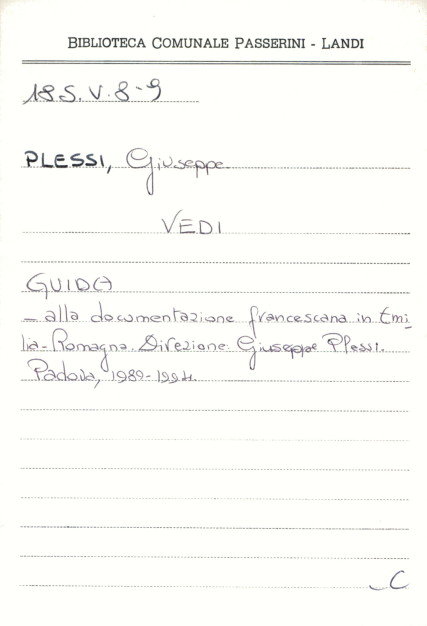 BIBLIOTECA COMUNALE PASSERINI - LANDI
18S.V.8-9
PLESSI, Giuseppe
VEDI
GUIDA
- alla documentazione francescana in Emi
lia-Romagna. Direzione: Giuseppe Plessi.
Padova, 1989-1994.
C